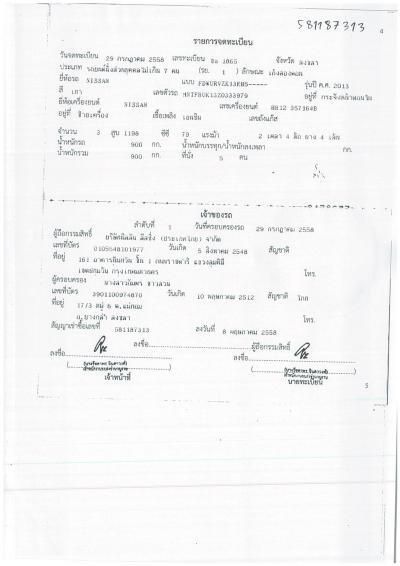 581187313
4
รายการจดทะเบียน
วันจดทะเบียน 29 กรกฎาคม 2558 เลขทะเบียน 1865 จังหวัด สงขลา
ประเภท รถยนต์นั่งส่วนบุคคลไม่เกิน 7 คน (รย. 1 ) ลักษณะ เก๋งสองตอน
ยี่ห้อรถ NISSAN แบบ รุ่นปี ค.ศ. 2013
สี เทา เลขตัวรถ อยู่ที่
ยี่ห้อเครื่องยนต์ NISSAN เลขเครื่องยนต์ HR12 357164B
อยู่ที่ เชื้อเพลิง เบนซิน เลขถังแก๊ส
จำนวน 3 สูบ 1198 ซีซี 79 แรงม้า 2 เพลา 4 ล้อ ยาง 4 เส้น
น้ำหนักรถ 900 กก. น้ำหนักบรรทุก/น้ำหนักลงเพลา กก.
น้ำหนักรวม 900 กก. ที่นั่ง 5 คน
เจ้าของรถ
ลำดับที่ 1 วันที่ครอบครองรถ 29 กรกฎาคม 2558
ผู้ถือกรรมสิทธิ์ บริษัทนิสสัน ลีสซิ่ง (ประเทศไทย) จำกัด
เลขที่บัตร 0105548101977 วันเกิด 5 สิงหาคม 2548 สัญชาติ
ที่อยู่ 161 อาคารนันทวัน ชั้น 1 ถนนราชดำริ แขวงลุมพินี
เขตปทุมวัน กรุงเทพมหานคร โทร.
ผู้ครอบครอง
เลขที่บัตร 3901100974870 วันเกิด 10 พฤษภาคม 2512 สัญชาติ ไทย
ที่อยู่ 17/3 หมู่ 6 ต.แม่ทอม
อ.บางกล่ำ สงขลา โทร.
สัญญาเช่าซื้อเลขที่ 581187313 ลงวันที่ 8 พฤษภาคม 2558
ลงชื่อ ผู้ถือกรรมสิทธิ์
ลงชื่อ ลงชื่อ
เจ้าหน้าที่ นายทะเบียน
5